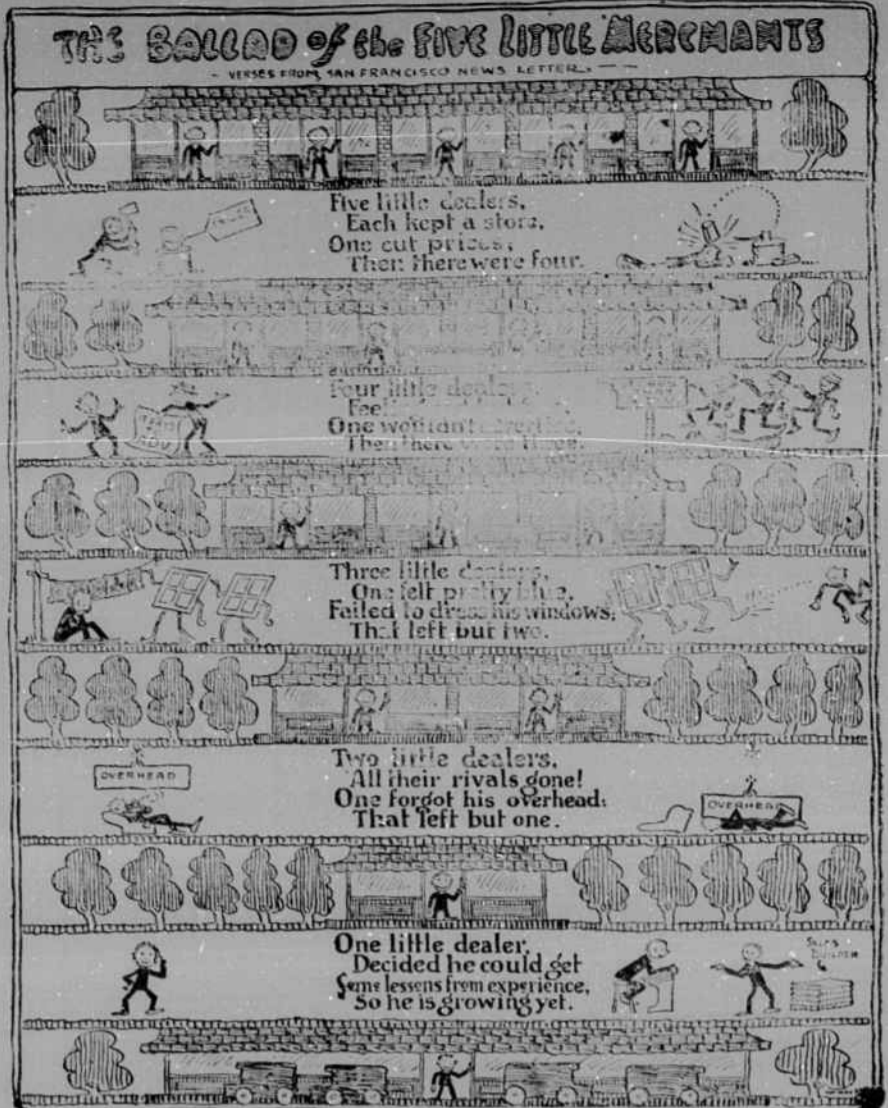 THE BALLAD of the FIVE LITTLE MERCHANTS
- VERSES FROM SAN FRANCISCO NEWS LETTER. -
Five little dealers,
Each kept a store,
One cut prices;
Then there were four.
Four little dealers,
One wouldn't advertise,
Then there were three.
Three little dealers,
One felt pretty blue,
Failed to dress his windows;
That left but two.
OVERHEAD
Two little dealers,
All their rivals gone!
One forgot his overhead;
That left but one.
OVERHEAD
One little dealer,
Decided he could get
Some lessons from experience,
So he is growing yet.